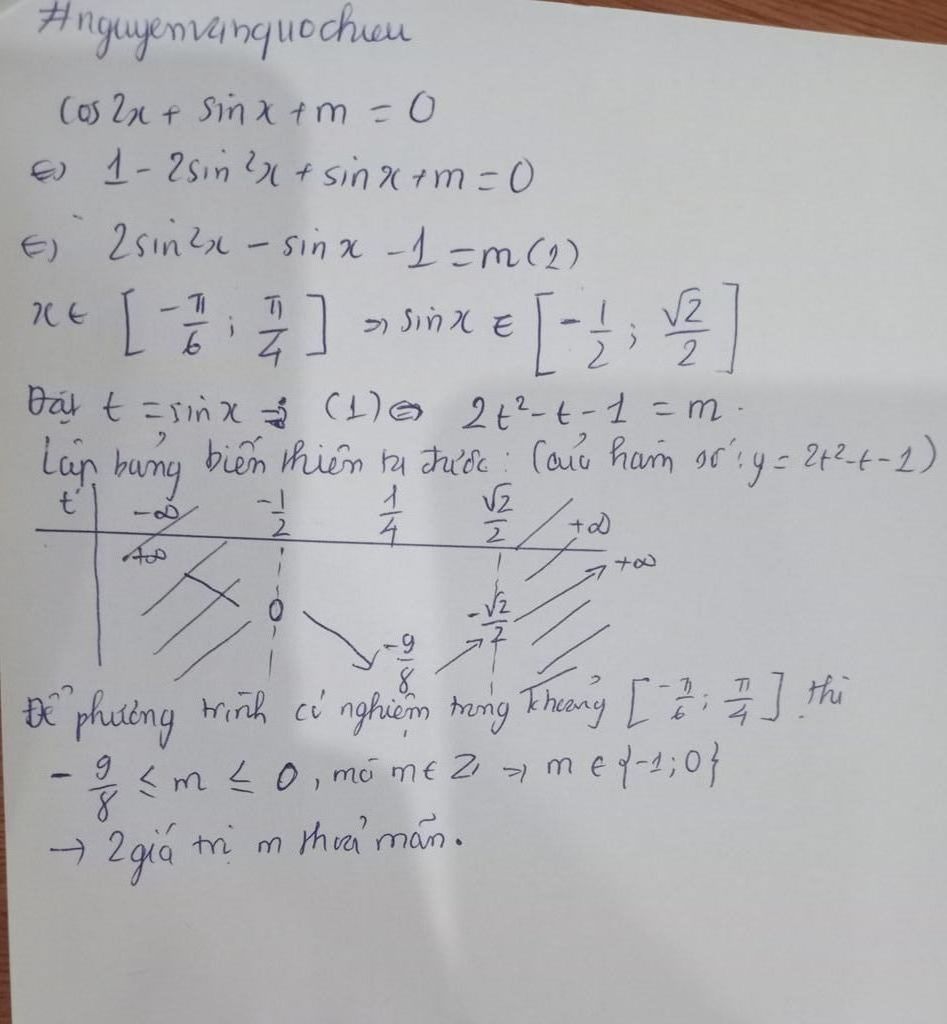 #nguyenvanquochieu
cos 2x + sin x + m = 0
⇔ 1 - 2sin²x + sin x + m = 0
⇔ 2sin²x - sin x - 1 = m (1)
x ∈ [-π/6 ; π/4] ⇒ sin x ∈ [-1/2 ; √2/2]
Đặt t = sin x ⇒ (1) ⇔ 2t² - t - 1 = m.
Lập bảng biến thiên ta được: (của hàm số: y = 2t² - t - 1)
t -∞ -1/2 1/4 √2/2 +∞
+∞ 0 -9/8 -√2/2 +∞
Để phương trình có nghiệm trong khoảng [-π/6 ; π/4] thì
-9/8 ≤ m ≤ 0, mà m ∈ Z ⇒ m ∈ {-1; 0}
→ 2 giá trị m thoả mãn.